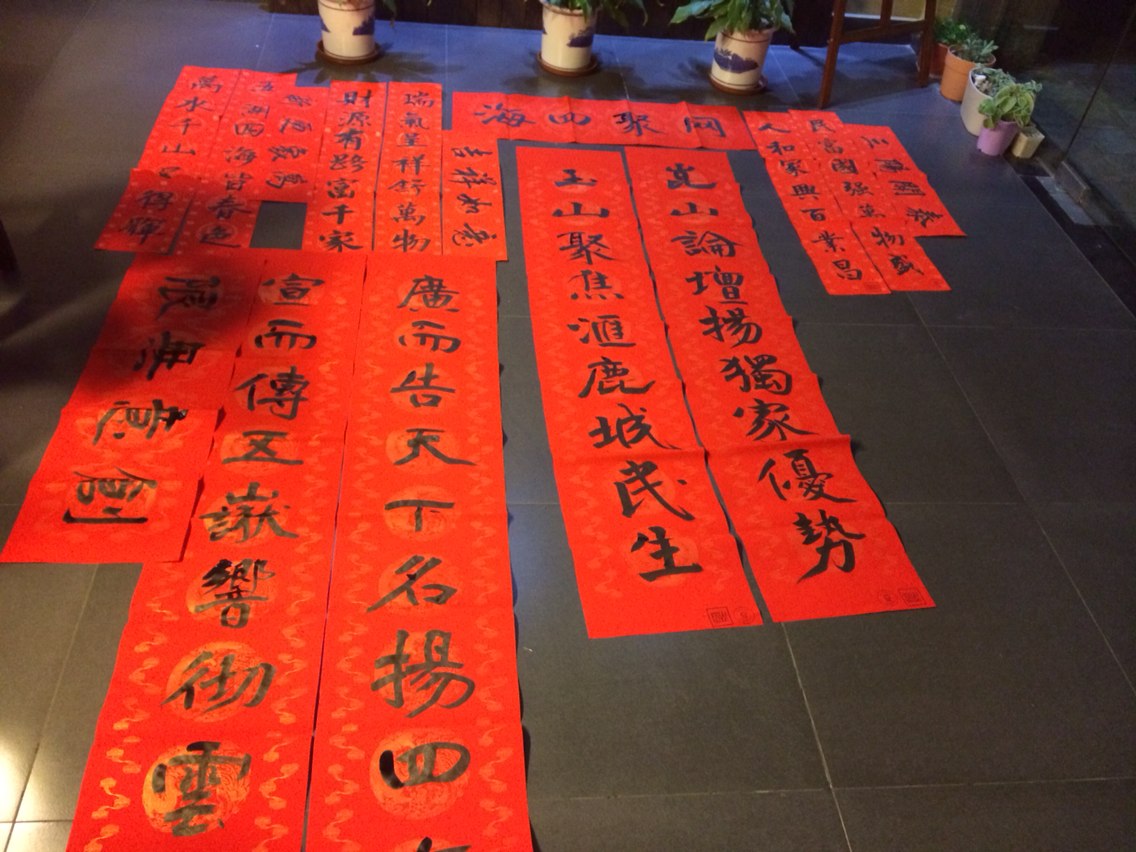 民富國強萬物盛
人和家興百業昌
网聚四海
昆山論壇揚獨家優勢
玉山聚焦滙鹿城民生
吉祥如意
瑞氣呈祥舒萬物
財源有路富千家
五湖四海皆春色
萬水千山得輝
廣而告天下名揚四
宣而傳五嶽響彻雲